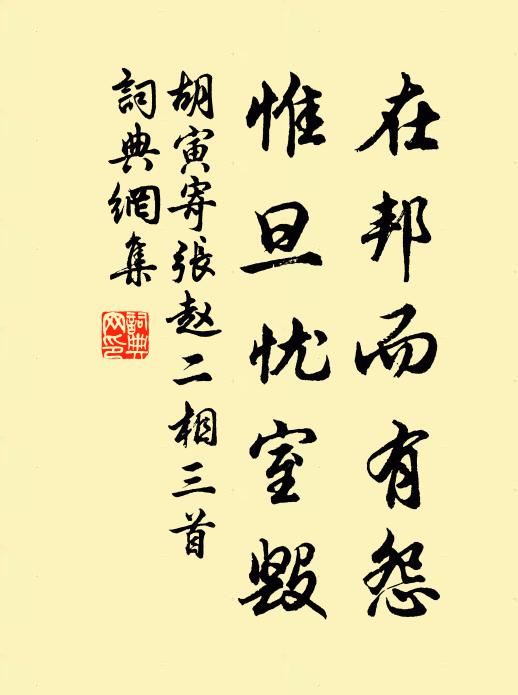 在邦而有怨
惟旦忧室毁
胡寅寄張赵二相三首
詞典網集
詞典
网印